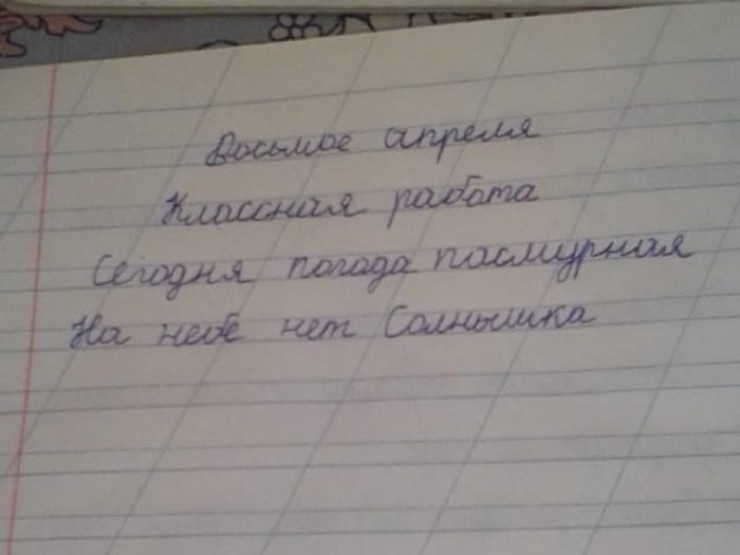 Восьмое апреля
Классная работа
Сегодня погода пасмурная
На небе нет Солнышка